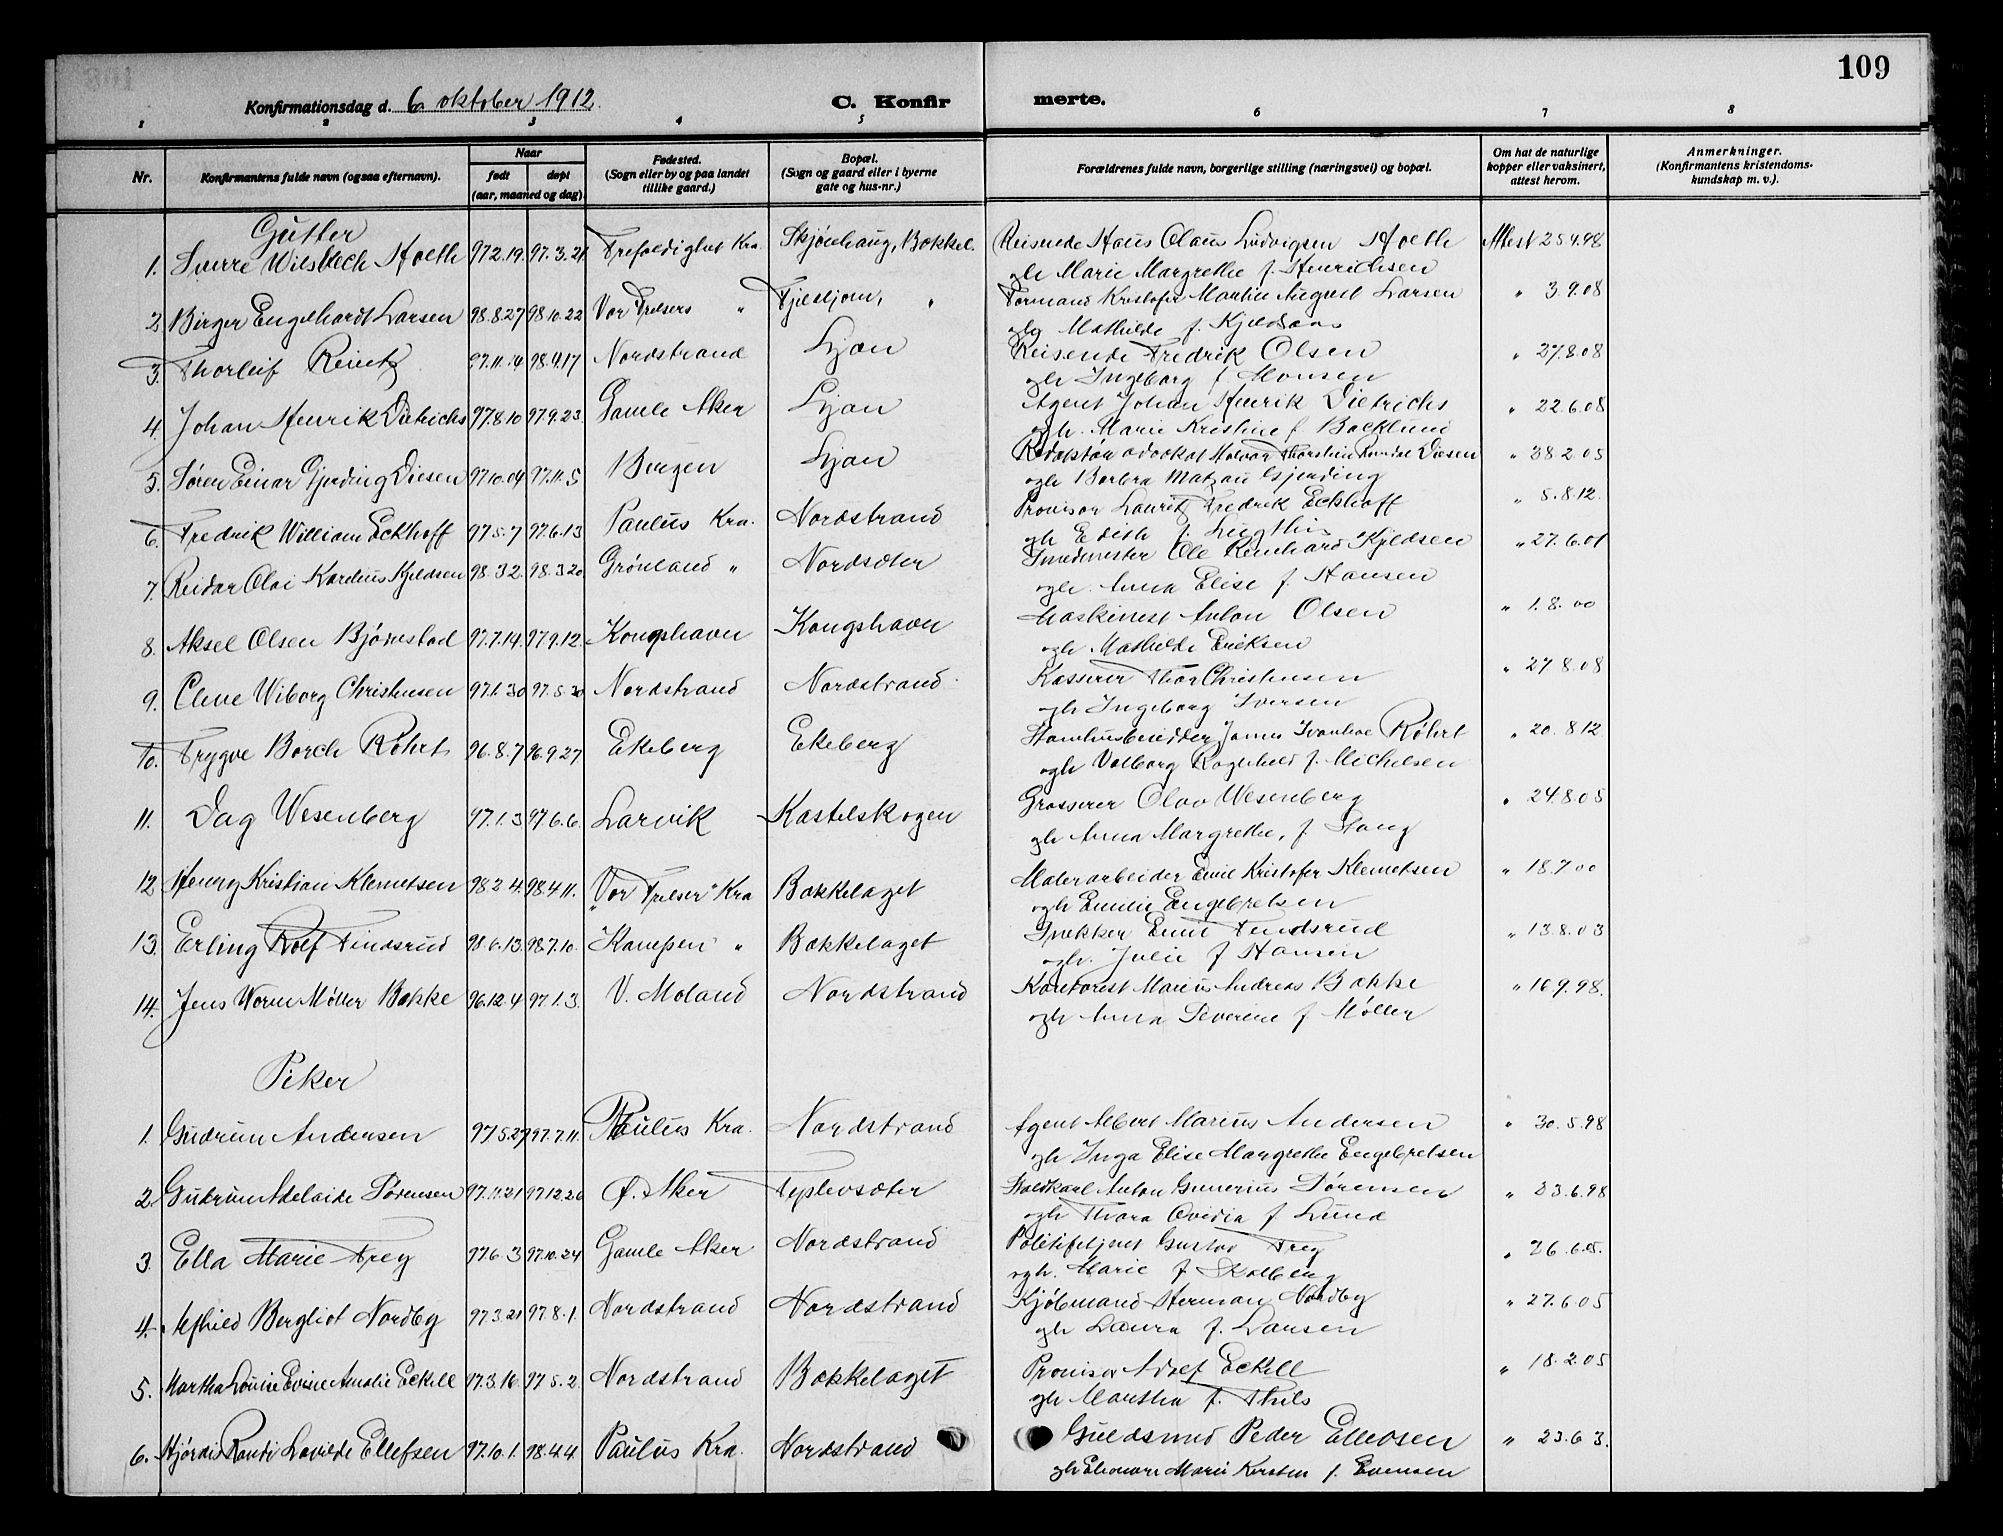 109
Konfirmationsdag d. 6 oktober 1912. C. Konfirmerte.
1 2 3 4 5 6 7 8
Nr. Konfirmantens fulde navn (ogsaa efternavn). Naar født døpt (aar, maaned og dag). Fødested. (Sogn eller by og paa landet tillike gaard.) Bopæl. (Sogn og gaard eller i byerne gate og hus-nr.) Forældrenes fulde navn, borgerlige stilling (næringsvei) og bopæl. Om hat de naturlige kopper eller vaksinert, attest herom. Anmerkninger. (Konfirmantens kristendomskundskap m. v.).
Gutter
1. Sverre Hoeth 97.2.19. 97.3.21. Trefoldighet Kra. Skjönhaug, Bækkel. Reisende Hans Claus Ludvigsen Hoeth Attest 25.4.98
og h Marie Margrethe f. Henrichsen
2. Birger Engelhardt Larsen 98.8.27 98.10.22 Vor Frelsers " " Formand Kristofer Martin August Larsen " 3.9.08
og h Mathilde f.
3. Thorleif 97.11.14 98.4.17 Nordstrand Ljan Reisende Fredrik Olsen " 27.8.08
og h Ingeborg f. Monsen
4. Johan Henrik Dietrichs 97.8.10 97.9.23. Gamle Aker Ljan Agent Johan Henrik Dietrichs " 22.6.08
og h. Marie Kristine f. Backlund
5. Søren Einar Gjerding Diesen 97.10.04 97.11.5 Bergen Ljan Redaktør advokat Halvor Thorstein Diesen " 38.2.05
og h Barbra Gjerding
6. Fredrik William Eckhoff 97.5.7 97.6.13 Paulus Kra. Nordstrand Provisor Lauritz Fredrik Eckhoff " 5.8.12.
og h Edith f.
7. Reidar Olai Kjeldsen 98.3.2. 98.3.20 Grønland " Nordsæter Ole Reinhard Kjeldsen " 27.6.01
og h. Anna Elise f. Hansen
8. Aksel Olsen Bjørnstad 97.7.14. 97.9.12. Kongshavn Kongshavn Maskinist Anton Olsen " 1.8.00
og h. Mathilde Eriksen
9. Cleve Wiborg Christensen 97.1.30 97.5.30 Nordstrand Nordstrand. Kasserer Thor Christensen " 27.8.08
og h Ingeborg Iversen
10. Trygve Borch Röhrt 96.8.7 96.9.27 Ekeberg Ekeberg James Ivanhoe Röhrt " 20.8.12
og h Valborg Ragnhild f. Michelsen
11. Dag Wesenberg 97.1.3 97.6.6. Larvik Kastelskogen Grosserer Olav Wesenberg " 24.8.05
og h Anna Margrethe, f. Stang
12 Henry Kristian Klemetsen 98.2.4. 98.4.11. "Vor Frelser" Kra Bækkelaget Malerarbeider Emil Kristofer Klemetsen " 18.7.00
og h Emilie Engebretsen
13. Erling Rolf Tindsrud 98.6.13. 98.7.10. Kampen " Bækkelaget Snekker Tindsrud " 13.8.03
og h. Julie f Hansen
14. Jens Worm Møller Bakke 96.12.4 97.1.3. V. Moland Nordstrand Kontorist Marius Andreas Bakke " 16.9.98.
og h Anna Severine f Møller
Piker
1. Gudrun Andersen 97.5.27 97.7.11. Paulus Kra. Nordstrand Agent Albert Marius Andersen " 30.5.98
og h Inga Elise Margrethe Engebretsen
2. Gudrun Adelaide Sörensen 97.11.21 97.12.26 Ø. Aker Anton Gunerius Sörensen " 23.6.98
og h Thora Ovidia f Lund
3. Ella Marie Frey 97.6.3 97.10.24 Gamle Aker Nordstrand Politibetjent Gustav Frey " 26.6.05.
og h. Marie f
4. Bergliot Nordby 97.3.21 97.8.1. Nordstrand Nordstrand Kjøbmand Herman Nordby " 27.6.05
og h Laura f. Larsen
5. Martha Louise Amalie Eckell 97.3.16. 97.5.2. Nordstrand Bækkelaget Provisor Adolf Eckell " 18.2.05
og h Martha f. Thils
6. Hjørdis Randi Ellefsen 97.10.1. 98.4.4. Paulus Kra. Nordstrand Guldsmed Peder Ellefsen " 23.6.3.
og h Eleonore Marie Kirsten f. Evensen